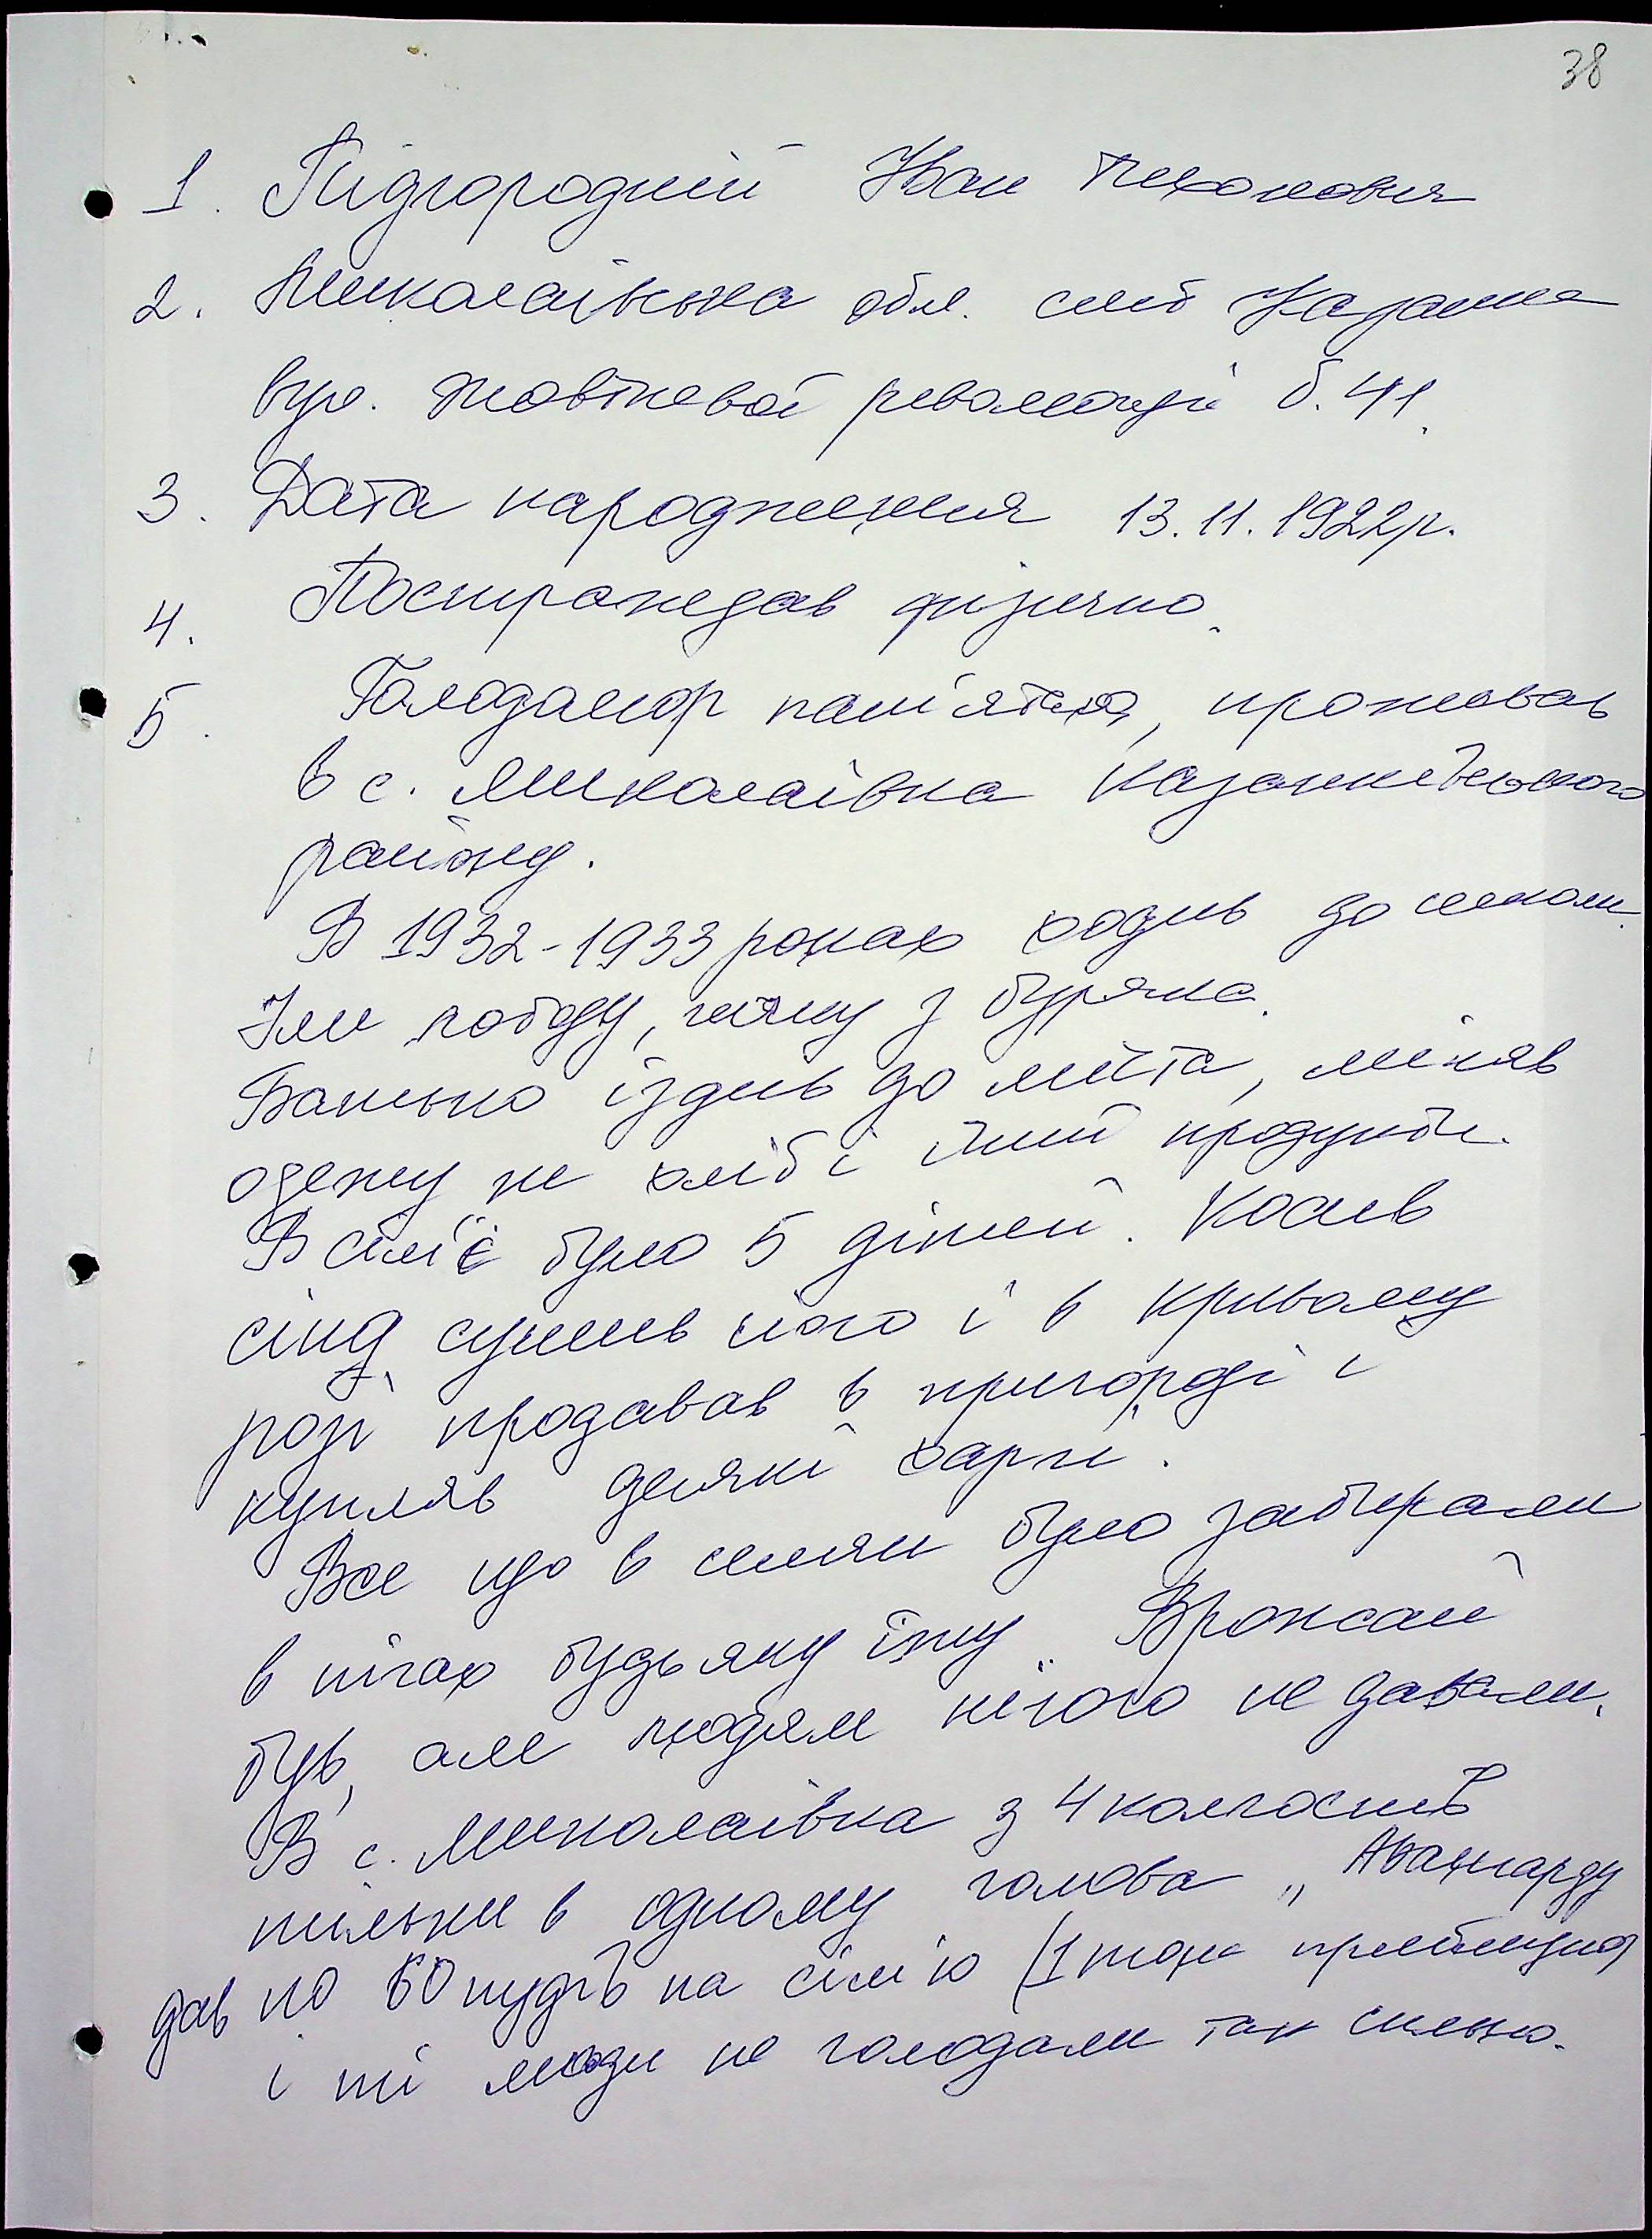 38
1. Підгородній Іван Тихонович
2. Миколаївська обл. смт Казанка
вул. Жовтневої революції б. 41.
3. Дата народження 13.11.1922р.
4. Постраждав фізично.
5. Голодомор пам'ятаю, проживав
в с. Миколаївка Казанківського
району.
В 1932-1933 роках ходив до школи.
Їли лободу, гичку з буряка.
Батько їздив до міста, міняв
одежу на хліб і інші продукти.
В сім'ї було 5 дітей. Косив
сіно, сушив його і в Кривому
розі продавав в пригороді і
купляв деякі харчі.
Все що в селян було забирали
в пічах будь яку їжу. Врожай
був, але людям нічого не давали.
В с. Миколаївка з 4 колгоспів
тільки в одному голова „Авангарду
дав по 60 пудів на сім'ю (1 тона приблизно)
і ті люди не голодали так сильно.